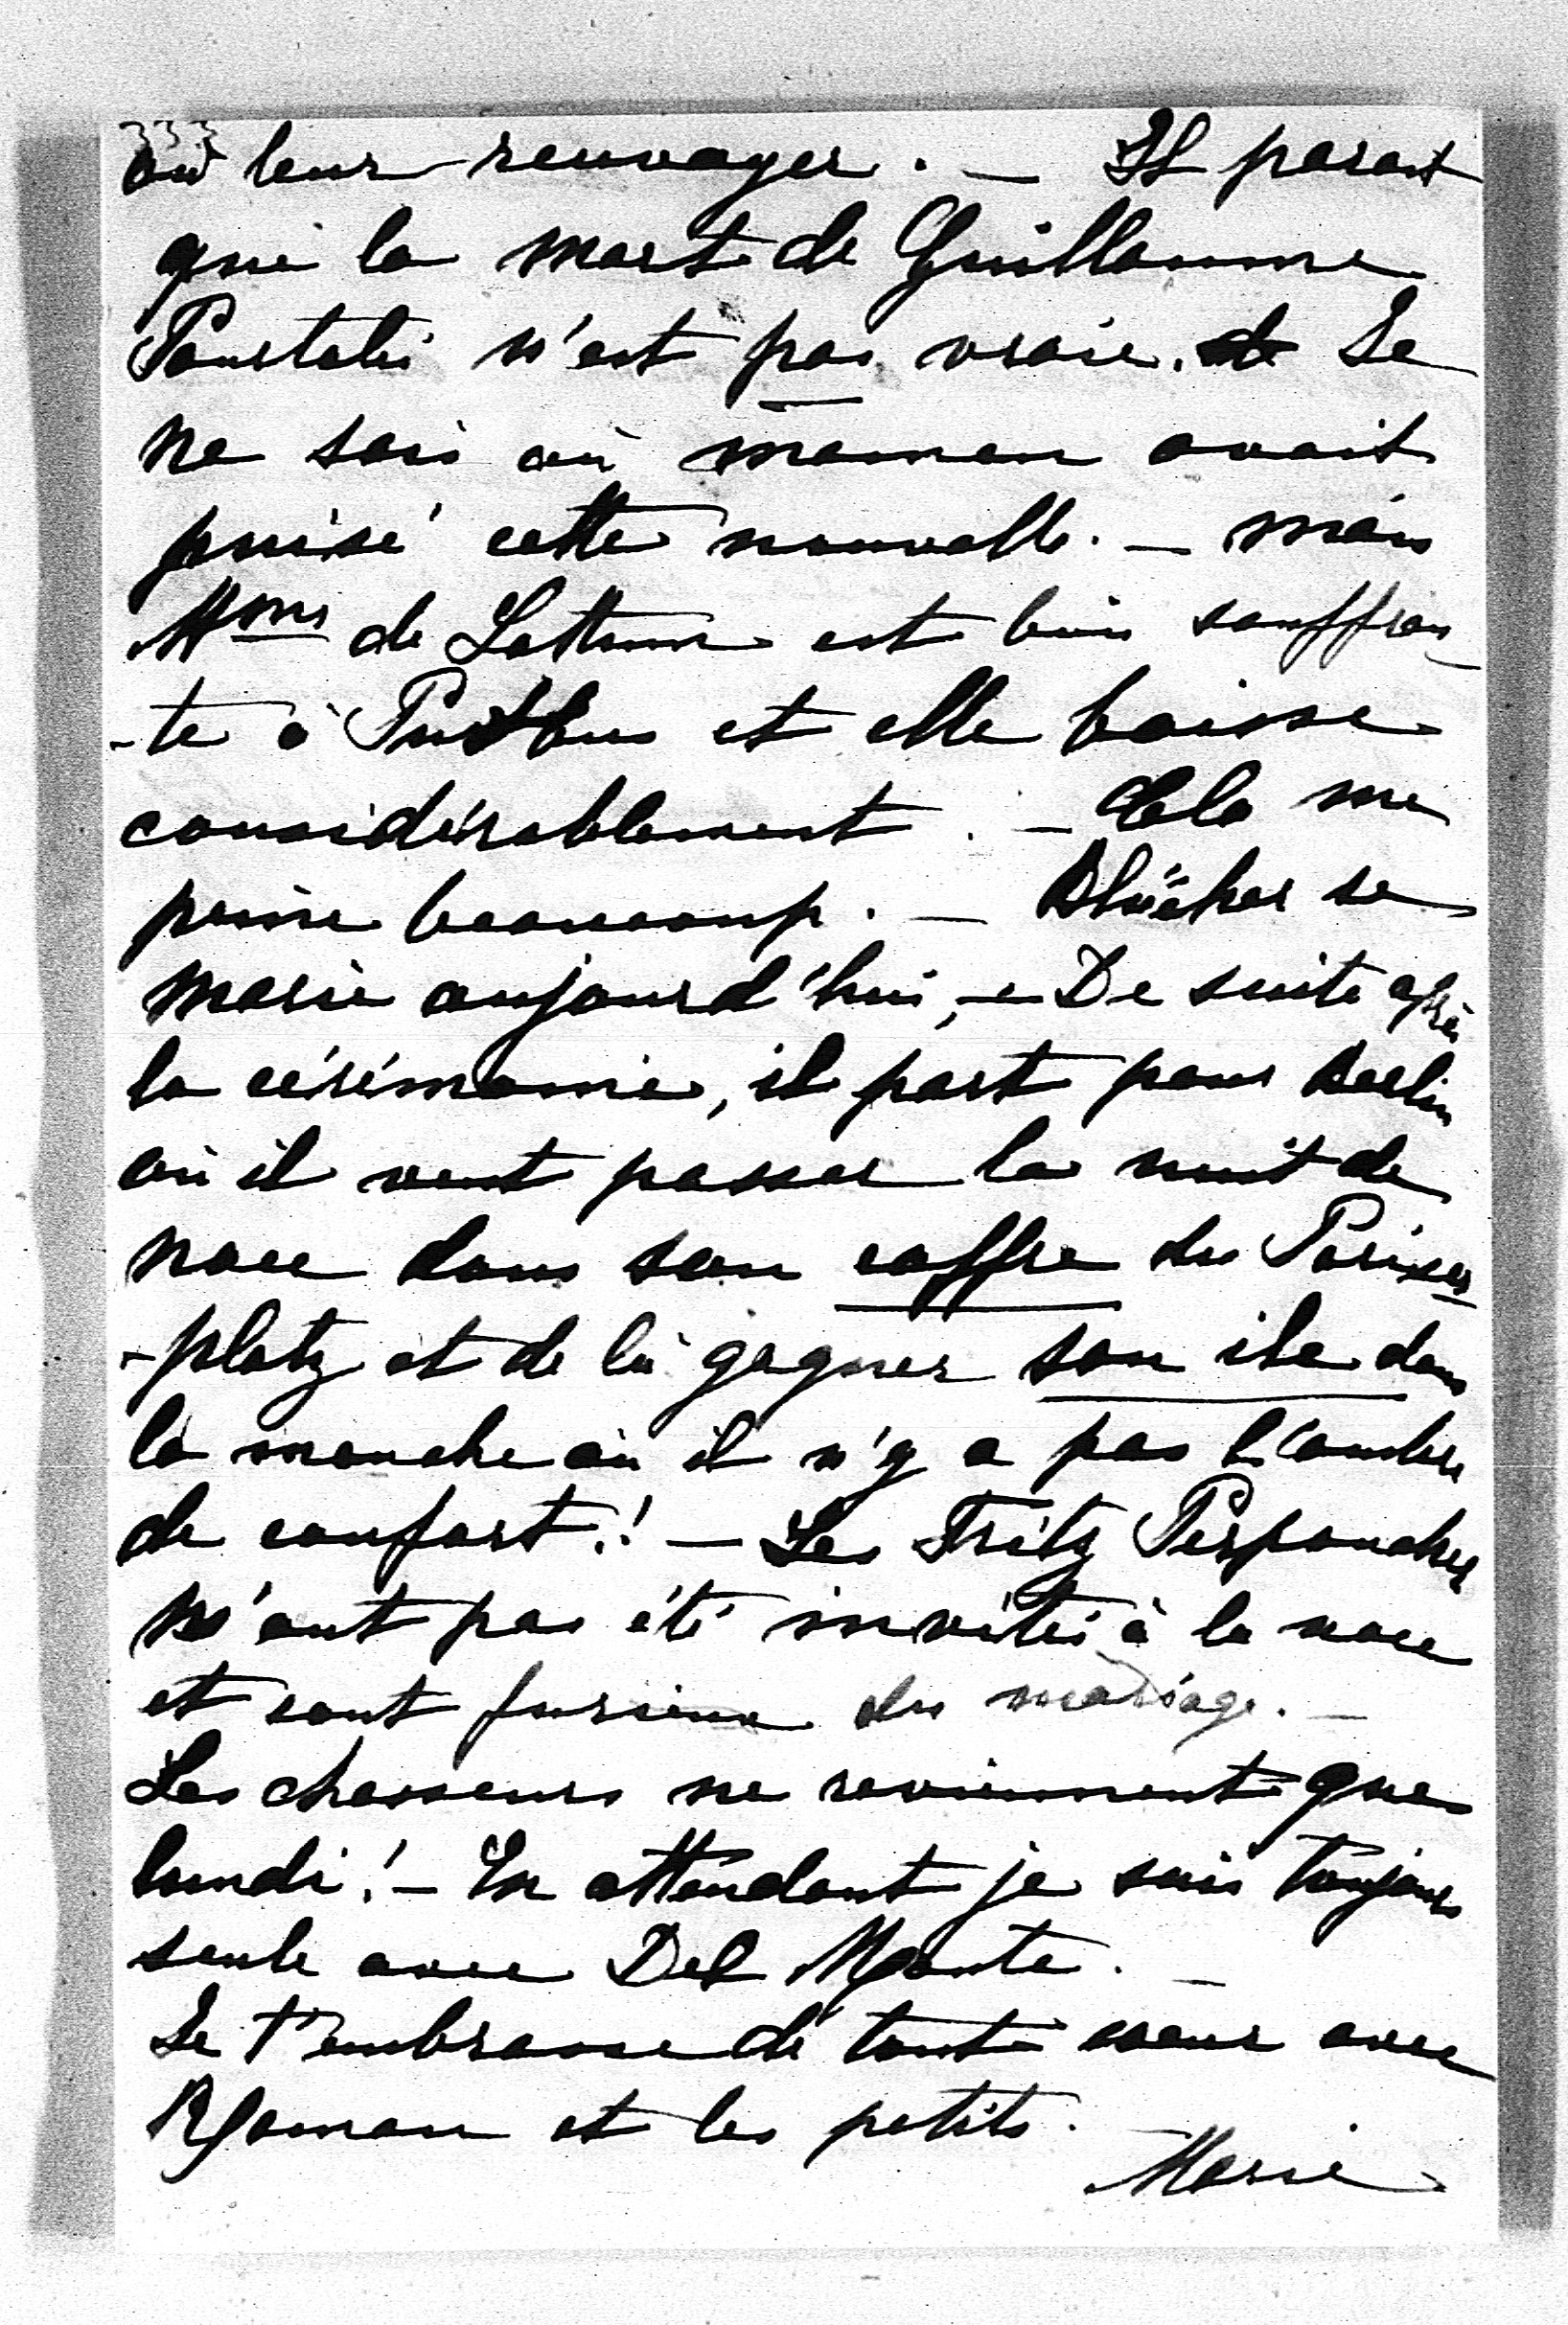 333
ou leur renvoyer. — Il parait
que la mort de Guillaume
Pourtalès n'est pas vraie. Je
ne sais où maman avait
puisé cette nouvelle. — mais
Mme de Lottum est bien souffran-
-te à Putbus et elle baisse
considérablement. — Cela me
peine beaucoup. — Blücher se
marie aujourd'hui, — De suite après
la cérémonie, il part pour Berlin
où il veut passer la nuit de
noce dans son coffre du Pariser-
-platz et de là gagner son ile dans
la manche où il n'y a pas l'ombre
de confort! — Les Fritz Perponcher
n'ont pas été invités à la noce
et sont furieux du mariage. —
Les chasseurs ne reviennent que
lundi! — En attendant je suis toujours
seule avec Del Monte. —
Je t'embrasse de tout cœur avec
Maman et les petits.
Marie